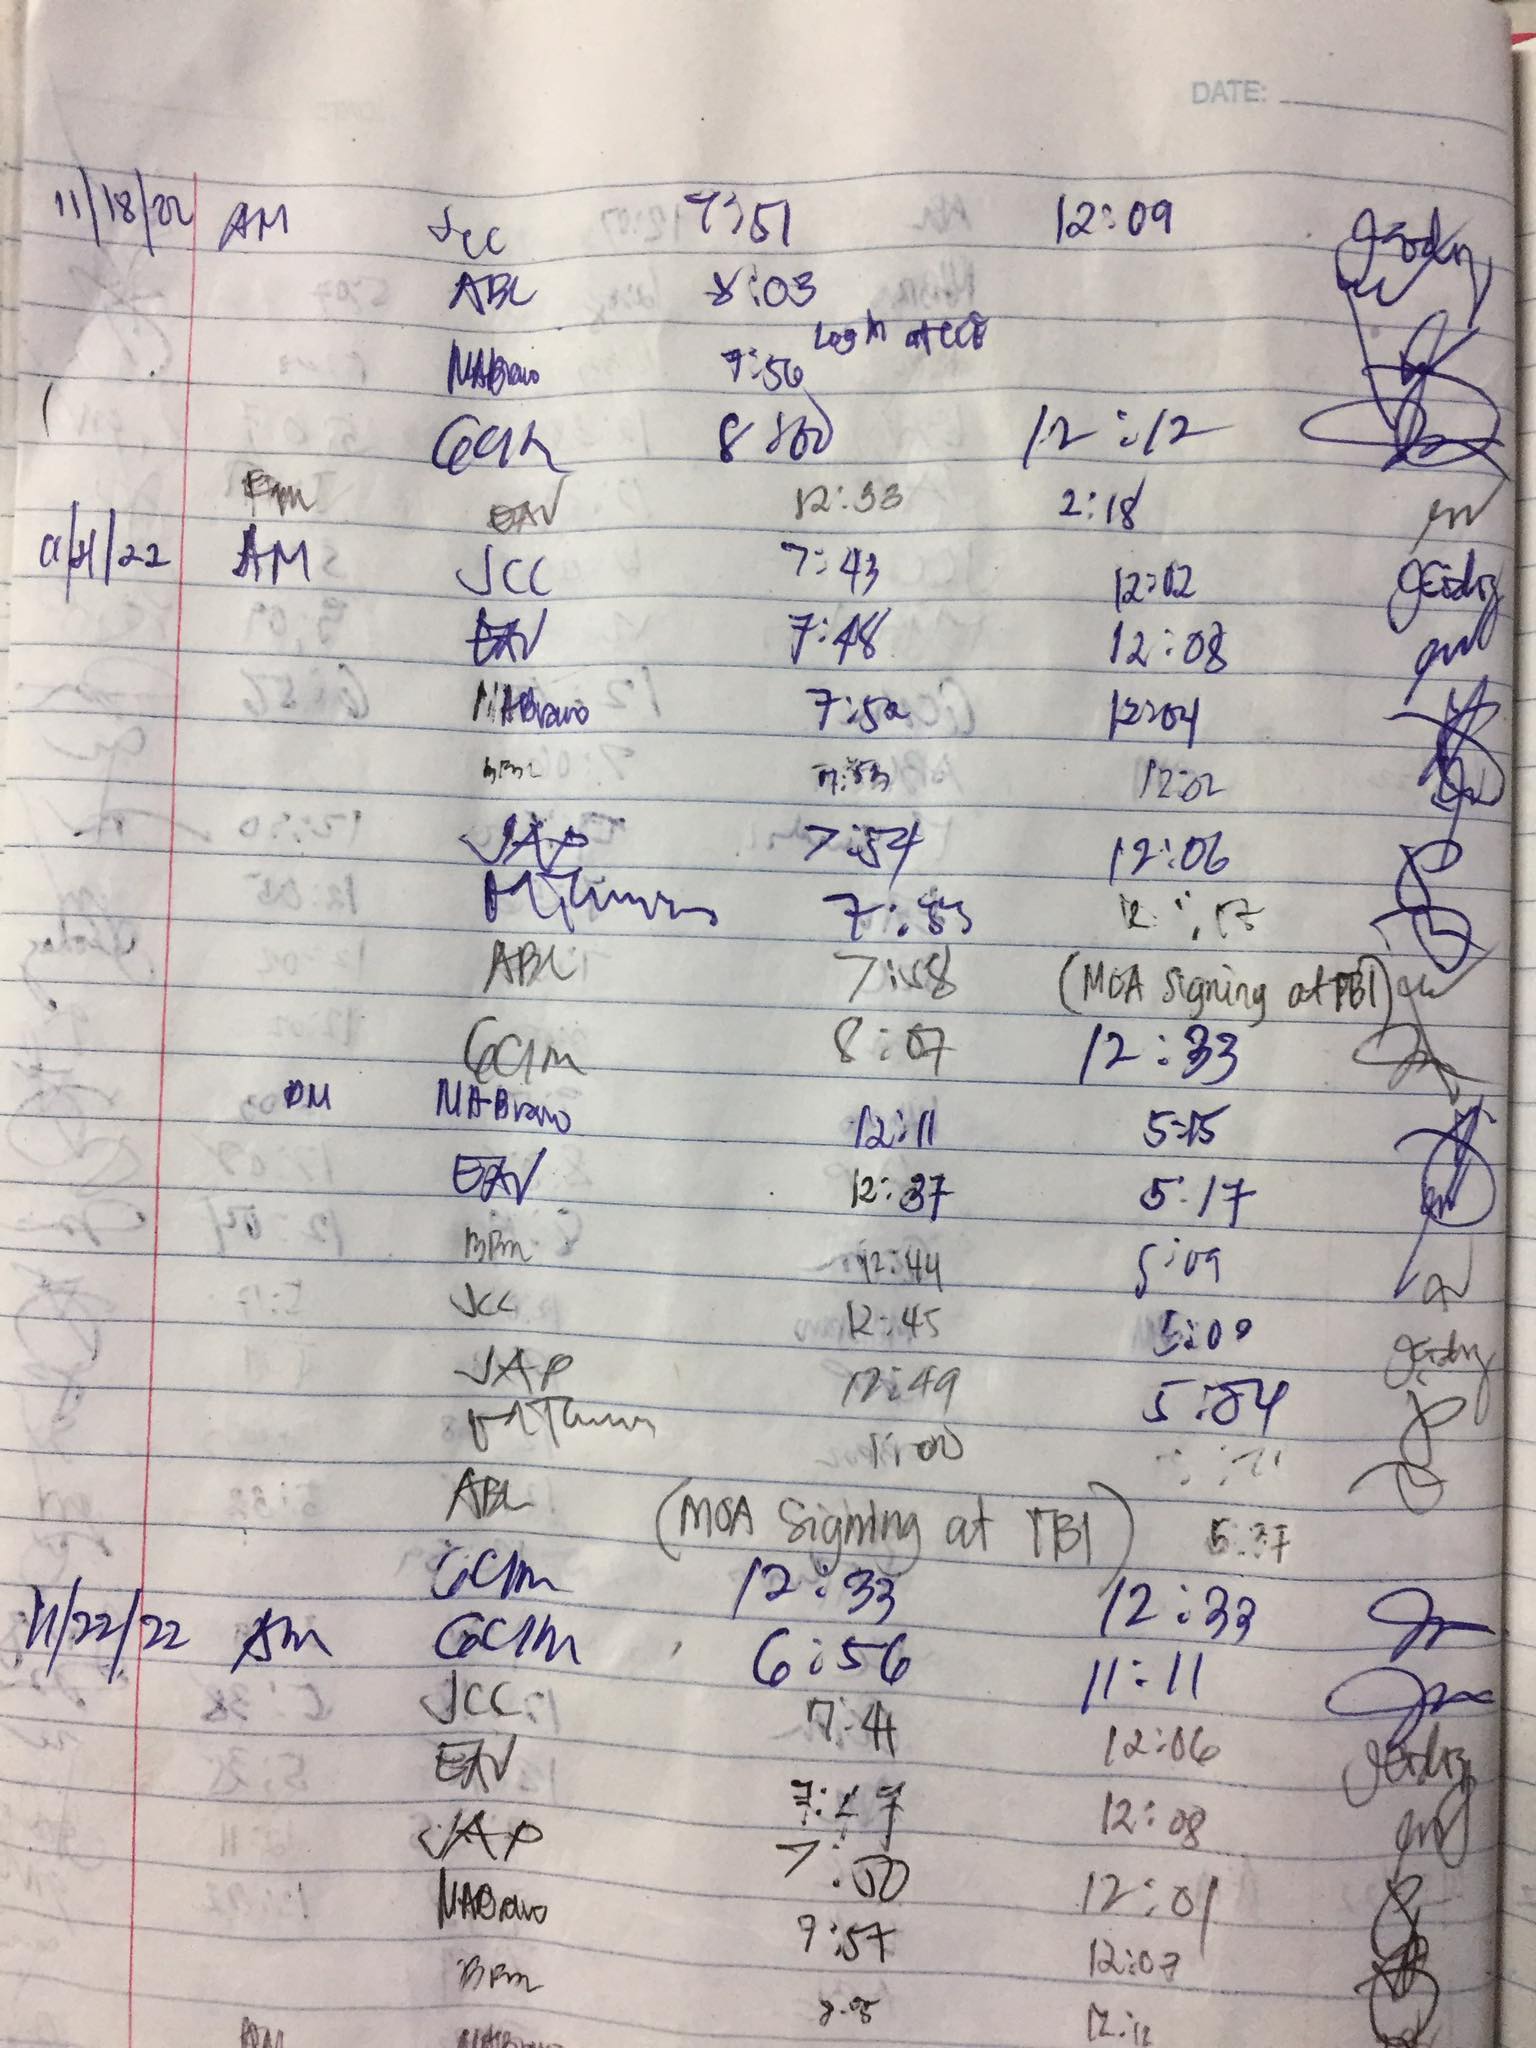 DATE:
11/18/22 AM JCC 7:51 12:09
ABL 8:03
Log in at CCE
MABravo 7:56
GCIM 8:00 12:12
PM EAV 12:33 2:18
11/21/22 AM JCC 7:43 12:02
EAV 7:48 12:08
MABravo 7:52 12:04
BPM 7:53 12:02
JAP 7:54 12:06
7:53 12:13
ABL 7:58 (MOA Signing at TBI)
GCIM 8:07 12:33
PM MABravo 12:11 5:15
EAV 12:37 5:17
BPM 12:44 5:09
JCC 12:45 5:09
JAP 12:49 5:04
1:00
ABL (MOA Signing at TBI) 5:37
GCIM 12:33 12:33
11/22/22 AM GCIM 6:56 11:11
JCC 7:41 12:06
EAV 7:47 12:08
JAP 7:50 12:01
MABravo 7:57 12:07
BPM 12:12
PM MABravo